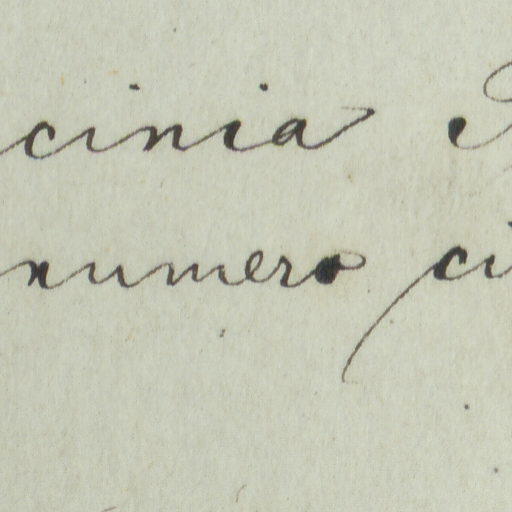 cinia
numero ci